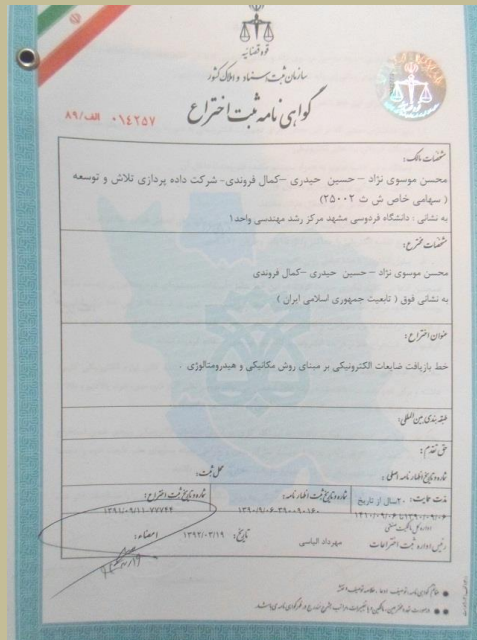 قوه قضائیه
سازمان ثبت اسناد و املاک کشور
گواهی نامه ثبت اختراع
الف/۸۹ ۰۱۴۲۵۷
مشخصات مالک:
محسن موسوی نژاد – حسین حیدری –کمال فروندی- شرکت داده پردازی تلاش و توسعه
( سهامی خاص ش ث ۲۵۰۰۲)
به نشانی : دانشگاه فردوسی مشهد مرکز رشد مهندسی واحد۱
مشخصات مخترع:
محسن موسوی نژاد – حسین حیدری –کمال فروندی
به نشانی فوق ( تابعیت جمهوری اسلامی ایران )
عنوان اختراع:
خط بازیافت ضایعات الکترونیکی بر مبنای روش مکانیکی و هیدرومتالوژی .
طبقه بندی بین المللی:
حق تقدم:
شماره و تاریخ اظهارنامه اصلی: محل ثبت:
مدت حمایت: ۲۰سال از تاریخ شماره و تاریخ ثبت اظهارنامه: شماره و تاریخ ثبت اختراع:
۱۳۹۰/۰۹/۰۶تا ۱۴۱۰/۰۹/۰۶ ۱۳۹۰/۰۹/۰۶-۳۹۰۰۹۰۱۶۰ ۱۳۹۱/۰۹/۱۱-۷۷۷۴۴
اداره کل مالکیت صنعتی
رئیس اداره ثبت اختراعات مهرداد الیاسی تاریخ: ۱۳۹۲/۰۳/۱۹ امضاء: